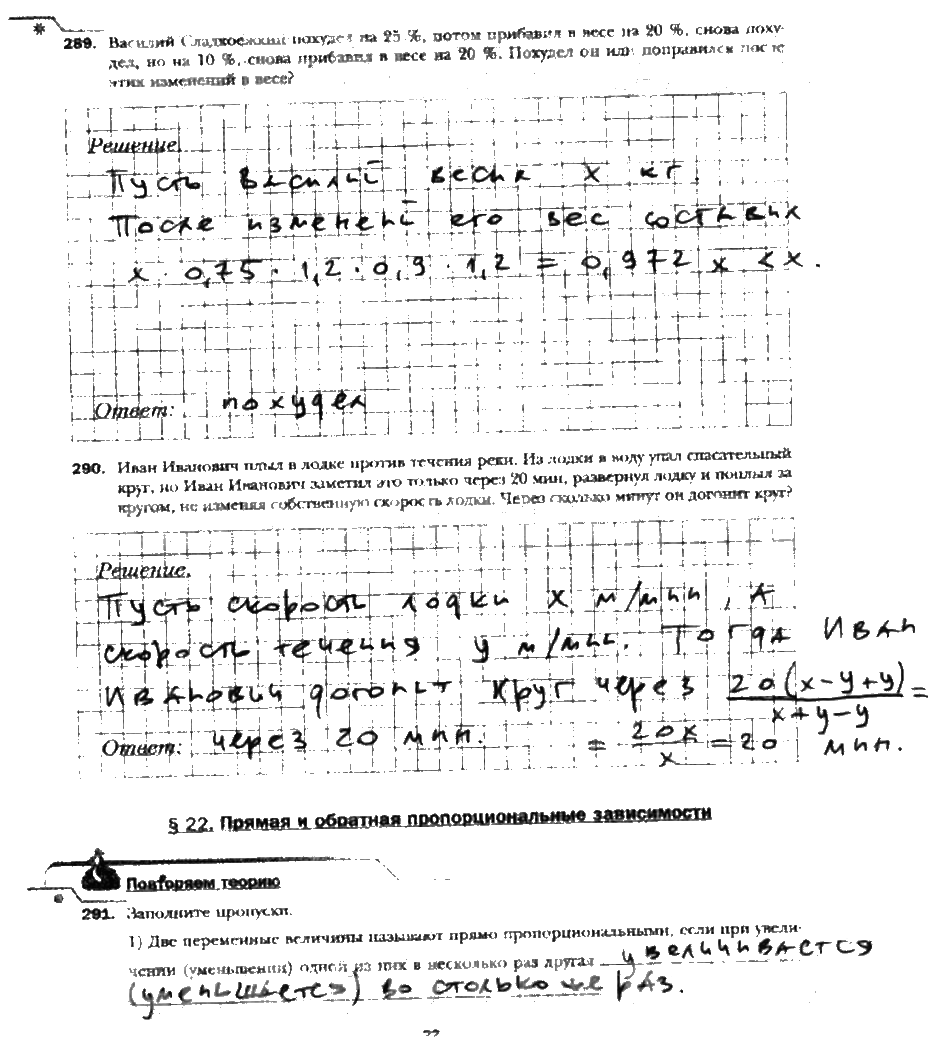 289. Василий Сладкоежкин похудел на 25 %, потом прибавил в весе на 20 %, снова поху-
дел, но на 10 %, снова прибавил в весе на 20 %. Похудел он или поправился после
этих изменений в весе?
Решение.
Пусть Василий весил x кг.
После изменений его вес составил
x · 0,75 · 1,2 · 0,9 · 1,2 = 0,972 x < x.
Ответ: похудел
290. Иван Иванович плыл в лодке против течения реки. Из лодки в воду упал спасательный
круг, но Иван Иванович заметил это только через 20 мин, развернул лодку и поплыл за
кругом, не изменяя собственную скорость лодки. Через сколько минут он догонит круг?
Решение.
Пусть скорость лодки x м/мин, а
скорость течения y м/мин. Тогда Иван
Иванович догонит круг через 20(x-y+y)/(x+y-y) =
Ответ: через 20 мин. = 20x/x = 20 мин.
§ 22. Прямая и обратная пропорциональные зависимости
Повторяем теорию
291. Заполните пропуски.
1) Две переменные величины называют прямо пропорциональными, если при увели-
чении (уменьшении) одной из них в несколько раз другая увеличивается
(уменьшается) во столько же раз.